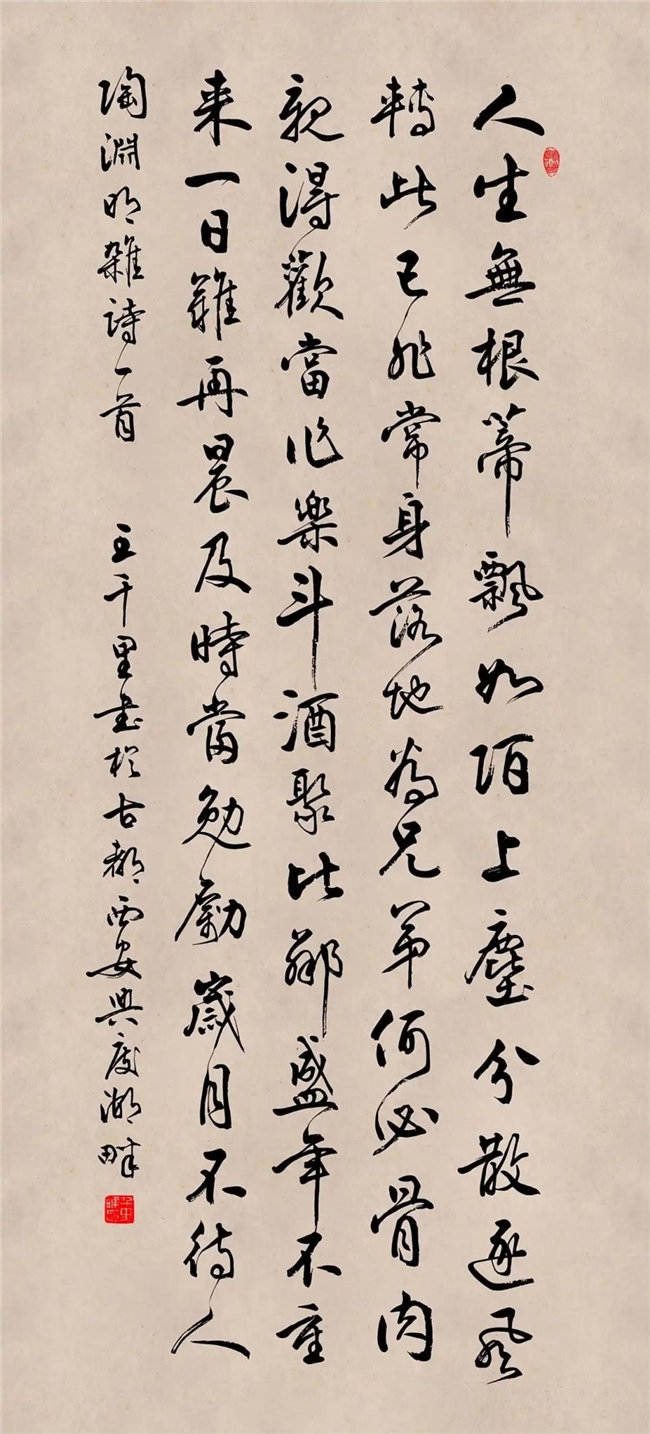 人生無根蒂飄如陌上塵分散逐風
轉此已非常身落地為兄弟何必骨肉
親得歡當作樂斗酒聚比鄰盛年不重
来一日難再晨及時當勉勵歲月不待人
陶淵明雜詩一首 王千里書於古都西安興慶湖畔